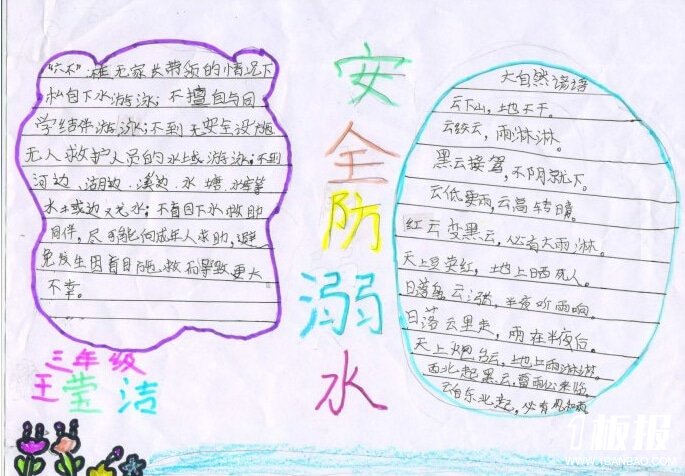 "六不":在无家长带领的情况下
私自下水游泳;不擅自与同
学结伴游泳;不到无安全设施
无人救护人员的水域游泳;不到
河边、湖边、溪边、水塘、水库等
水
边
水;不盲目下水救助
同伴,尽可能向成年人求助,避
免发生因盲目施救而导致更大
不幸。
三年级
王莹洁
安全防溺水
大自然谚语
云下山,地不干。
云绞云,雨淋淋。
黑云接驾,不阴就下。
云低要雨,云高转晴。
红云变黑云,必有大雨淋。
天上豆荚红,地上晒死人。
日落乌云涨,半夜听雨响。
日落云里走,雨在半夜后。
天上乌云,地上雨淋淋。
西北起黑云,雷雨必来临。
云自东北起,必有风和雨
板报
WWW.1BANBAO.COM